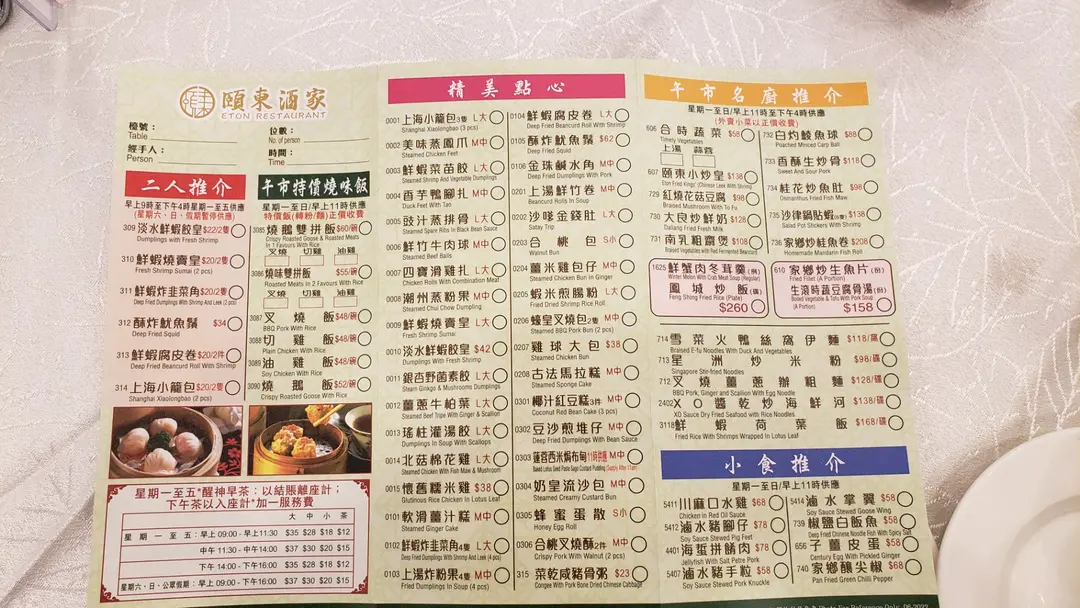 頤東酒家
ETON RESTAURANT
檯號：
Table
位數：
No. of person
經手人：
Person
時間：
Time
二人推介
早上9時至下午4時星期一至五供應
(星期六、日、假期暫停供應)
309 淡水鮮蝦餃皇$22/2隻
Dumplings with Fresh Shrimp
310 鮮蝦燒賣皇$20/2隻
Fresh Shrimp Sumai (2 pcs)
311 鮮蝦炸韭菜角$20/2隻
Deep Fried Dumplings With Shrimp And Leek (2 pcs)
312 酥炸魷魚鬚 $34
Deep Fried Squid
313 鮮蝦腐皮卷$20/2件
Deep Fried Beancurd Roll With Shrimp
314 上海小籠包$20/2隻
Shanghai Xiaolongbao (2 pcs)
午市特價燒味飯
星期一至日/早上11時供應
特價飯(轉粉/麵)正價收費
3085 燒鵝雙拼飯$60/碗
Crispy Roasted Goose & Roasted Meats
In 1 Favours With Rice
叉燒 切雞 油雞
3086 燒味雙拼飯 $55/碗
Roasted Meats In 2 Favours With Rice
叉燒 切雞 油雞
3087 叉燒飯$48/碗
BBQ Pork With Rice
3088 切雞飯$48/碗
Plain Chicken With Rice
3089 油雞飯$48/碗
Soy Chicken With Rice
3090 燒鵝飯$52/碗
Crispy Roasted Goose With Rice
星期一至五*醒神早茶：以結賬離座計；
下午茶以入座計*加一服務費
大 中 小 茶
星期一至五：早上 09:00 - 早上11:30 $35 $28 $18 $12
中午 11:30 - 中午14:00 $37 $30 $20 $15
下午 14:00 - 下午16:00 $35 $28 $18 $12
星期六、日、公眾假期：早上 09:00 - 下午16:00 $37 $30 $20 $15
精美點心
0001 上海小籠包3隻 L大
Shanghai Xiaolongbao (3 pcs)
0002 美味蒸鳳爪 M中
Steamed Chicken Feet
0003 鮮蝦菜苗餃 L大
Steamed Shrimp And Vegetable Dumplings
0004 香芋鴨腳扎 M中
Duck Feet With Tao
0005 豉汁蒸排骨 L大
Steamed Spare Ribs In Black Bean Sauce
0006 鮮竹牛肉球 M中
Steamed Beef Balls
0007 四寶滑雞扎 L大
Chicken Rolls With Combination Meat
0008 潮州蒸粉果 M中
Steamed Chui Chow Dumpling
0009 鮮蝦燒賣皇 L大
Fresh Shrimp Sumai
0010 淡水鮮蝦餃 $42
Dumplings With Fresh Shrimp
0011 銀杏野菌素餃 L大
Steam Ginkgo & Mushrooms Dumplings
0012 薑蔥牛柏葉 L大
Steamed Beef Tripe With Ginger & Scallion
0013 瑤柱灌湯餃 L大
Dumplings In Soup With Scallops
0014 北菇棉花雞 L大
Steamed Chicken With Fish Maw & Mushroom
0015 懷舊糯米雞 $38
Glutinous Rice Chicken In Lotus Leaf
0101 軟滑薑汁糕 M中
Steamed Ginger Cake
0102 鮮蝦炸韭菜角4隻 L大
Deep Fried Dumplings With Shrimp And Leek (4 pcs)
0103 上湯炸粉果4隻 M中
Fried Dumplings In Soup (4 pcs)
0104 鮮蝦腐皮卷 L大
Deep Fried Beancurd Roll With Shrimp
0105 酥炸魷魚鬚 $62
Deep Fried Squid
0106 金珠鹹水角 M中
Deep Fried Dumplings With Pork
0201 上湯鮮竹卷 M中
Beancurd Rolls In Soup
0202 沙嗲金錢肚 L大
Satay Trip
0203 合桃包 S小
Walnut Bun
0204 薑米雞包仔 M中
Steamed Chicken Bun In Ginger
0205 蝦米煎腸粉 L大
Fried Dried Shrimp Rice Roll
0206 蠔皇叉燒包2隻 M中
Steamed BBQ Pork Bun (2 pcs)
0207 雞球大包 $38
Steamed Chicken Bun
0208 古法馬拉糕 M中
Steamed Sponge Cake
0301 椰汁紅豆糕3件 M中
Coconut Red Bean Cake (3 pcs)
0302 豆沙煎堆仔 M中
Deep Fried Dumplings With Bean Sauce
0303 蓮蓉西米焗布甸11時供應 M中
Baked Lotus Seed Paste Sago Custard Pudding (Supply After 11am)
0304 奶皇流沙包 M中
Steamed Creamy Custard Bun
0305 蜂蜜蛋散 S小
Honey Egg Roll
0306 合桃叉燒酥2件 M中
Crispy Pork With Walnut (2 pcs)
315 菜乾咸豬骨粥 $23
Congee With Pork Bone Dried Chinese Cabbage
午市名廚推介
星期一至日/早上11時至下午4時供應
(外賣小菜以正價收費)
606 合時蔬菜 $58
Timely Vegetables
上湯 蒜蓉
607 頤東小炒皇 $138
Eton Fried Kings' (Chinese Leek With Shrimp
729 紅燒花菇豆腐 $98
Braised Mushroom With To Fu
730 大良炒鮮奶 $128
Daliang Fried Fresh Milk
731 南乳粗齋煲 $108
Braised Vegetables with Red Fermented Beancurd
732 白灼鯪魚球 $88
Poached Minced Carp Ball
733 香酥生炒骨 $118
Sweet And Sour Pork
734 桂花炒魚肚 $98
Osmanthus Fried Fish Maw
735 沙律鍋貼蝦(6隻) $138
Salad Pot Stickers With Shrimp
736 家鄉炒桂魚卷 $208
Homemade Mandarin Fish Roll
1625 鮮蟹肉冬茸羹 (例)
Winter Melon With Crab Meat Soup (Regular)
鳳城炒飯 (碟)
Feng Shing Fried Rice (Plate)
$260
610 家鄉炒生魚片 (份)
Fried Fillet (A Portion)
生滾時蔬豆腐肉湯 (份)
Boiled Vegetable & Tofu With Pork Soup
(A Portion)
$158
714 雪菜火鴨絲窩伊麵 $118/窩
Braised E-fu Noodles With Duck And Vegetables
713 星洲炒米粉 $98/碟
Singapore Stir-fried Noodles
712 叉燒薑蔥辦粗麵 $128/碟
BBQ Pork, Ginger and Scallion With Egg Noodle
2402 XO醬乾炒海鮮河 $138/碟
XO Sauce Dry Fried Seafood with Rice Noodles
3118 鮮蝦荷葉飯 $168/碟
Fried Rice With Shrimps Wrapped In Lotus Leaf
小食推介
星期一至日/早上11時供應
5411 川麻口水雞 $68
Chicken in Red Oil Sauce
5412 滷水豬腳仔 $78
Soy Sauce Stewed Pig Feet
4401 海蜇拼餚肉 $78
Jellyfish With Salt Petre Pork
5407 滷水豬手粒 $58
Soy Sauce Stewed Pork Knuckle
5414 滷水掌翼 $58
Soy Sauce Stewed Goose Wing
739 椒鹽白飯魚 $58
Deep Fried Chinese Noodle Fish With Spicy Salt
656 子薑皮蛋 $58
Century Egg With Pickled Ginger
740 家鄉釀尖椒 $68
Pan Fried Green Chilli Pepper